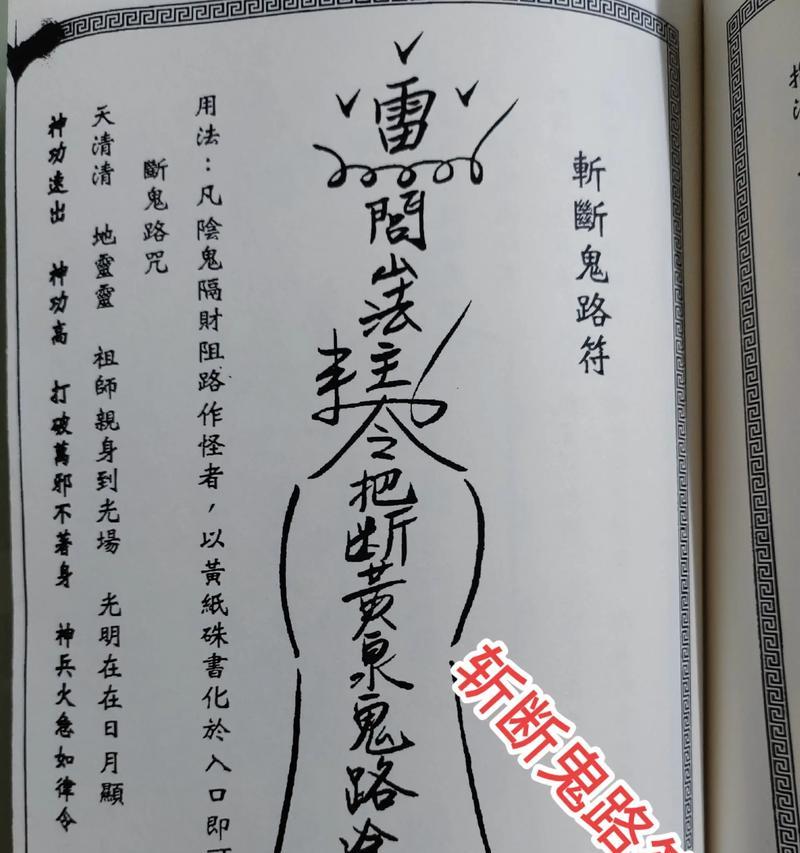 斬斷鬼路符
雷
問山法主令把断黃泉鬼路
用法：凡陰鬼隔財阻路作怪者，以黃紙硃書化於入口即可
斷鬼路咒
天清清 地靈靈 祖師親身到光場 光明在在日月顯
神功速出 神功高 打破萬邪不著身 神兵火急如律令
斩断鬼路符